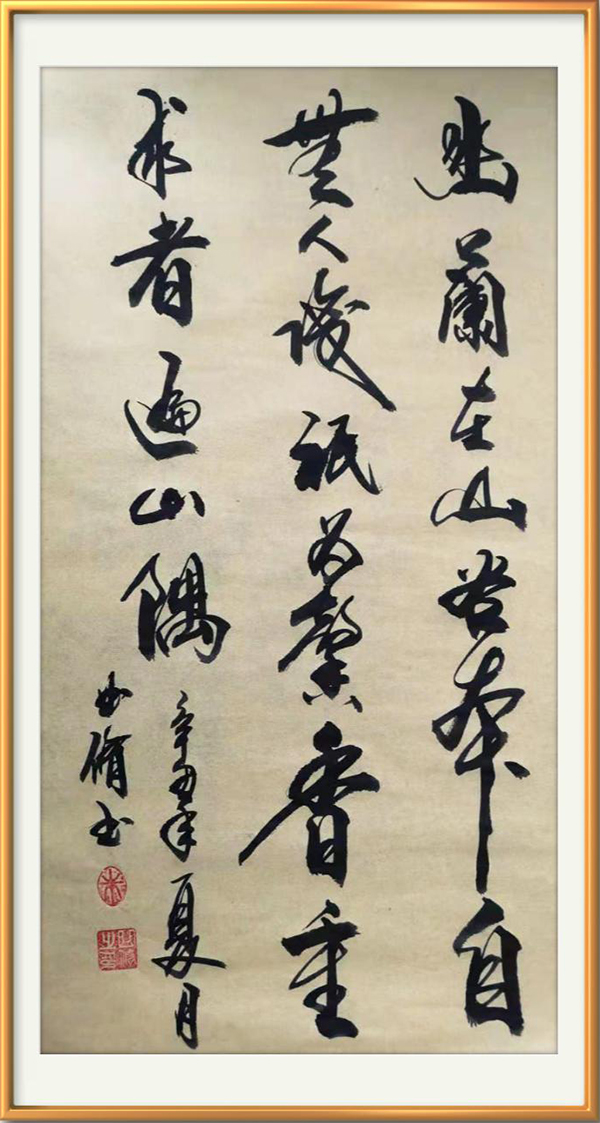 幽蘭在山谷本自
無人識祗為馨香重
求者遍山隅
辛丑年夏月
脩书